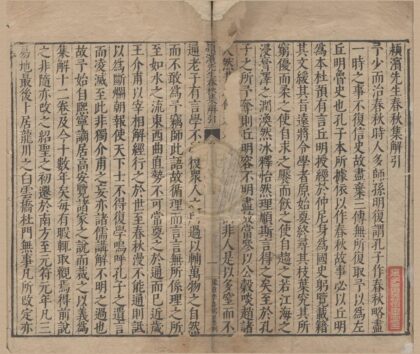 潁濱先生春秋集解引
予少而治春秋時人多師孫明復謂孔子作春秋略盡
一時之事不復信史故盡棄三傳無所復取予以為左
丘明魯史也孔子本所據依以作春秋故事必以丘明
為本杜預有言丘明授經於仲尼身為國史躬覽載籍
其文緩其旨遠將令學者原始要終尋其枝葉究其所
窮優而柔之使自求之饜而飫之使自趨之若江海之
浸膏澤之潤渙然冰釋怡然理順斯為得之矣至於孔
子之所予奪則丘明容不明盡故當參以公穀啖趙諸
人然 非人是以多窒而不
通老子有言學不 復眾人之 過以輔萬物之自然
而不敢為予竊師此語故循理而言言無所係理之所
至如水之流東西曲直勢不可常要之於通而已近歲
王介甫以宰相解經行之於世至春秋漫不能通則詆
以為斷爛朝報使天下士不得復學嗚呼孔子之遺言
而凌滅至此非獨介甫之妄亦諸儒講解不明之過也
故予始自熙寧謫居高安覽諸家之說而裁之以義為
集解十二卷及今十數年矣每有暇輒取觀焉得前說
之非隨亦改之紹聖之初遷於南方至元符元年凡三
易地最後卜居龍川之白雲橋杜門無事凡所改定亦